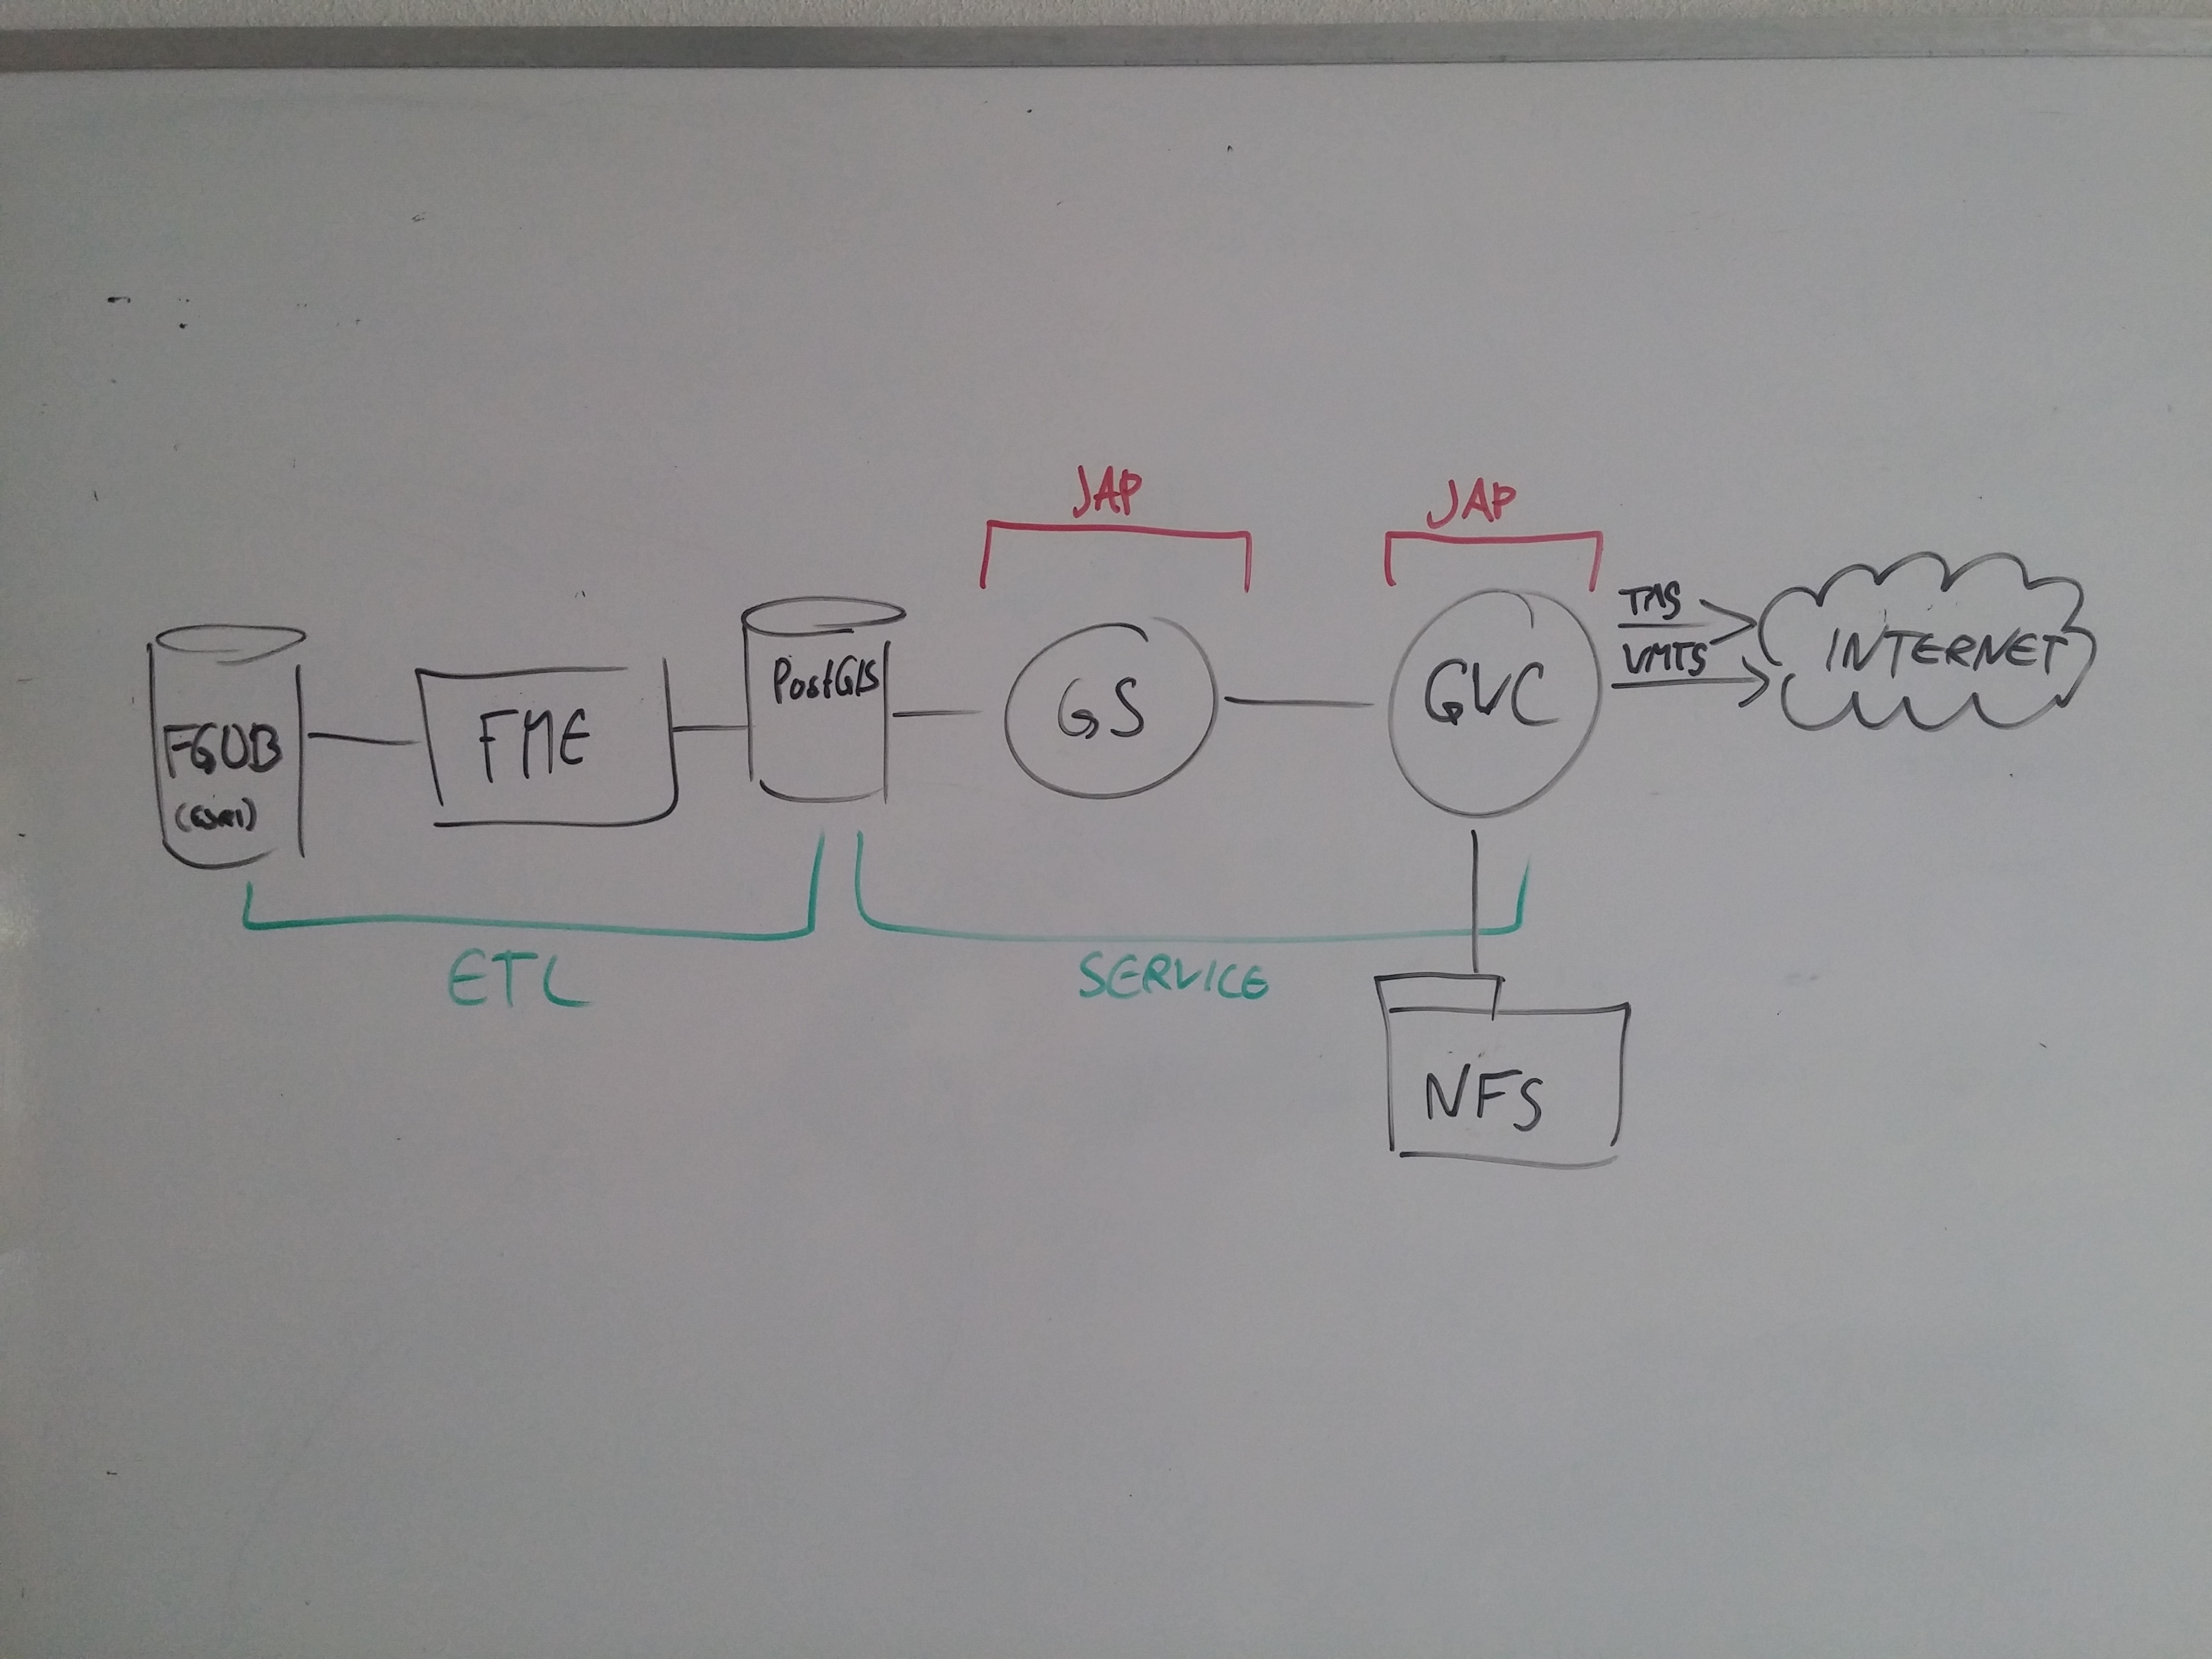 JAP
JAP
FGDB
(ESRI)
FME
PostGIS
GS
GWC
TMS
VMTS
INTERNET
ETL
SERVICE
NFS